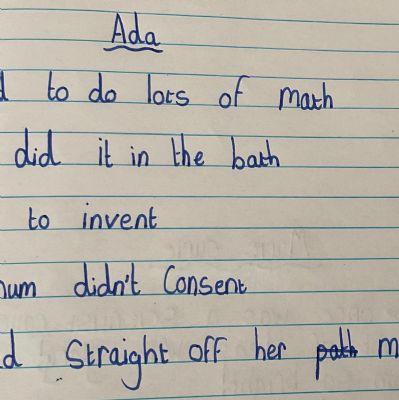 Ada
to do lots of math
did it in the bath
to invent
mum didn't Consent
Straight off her path m